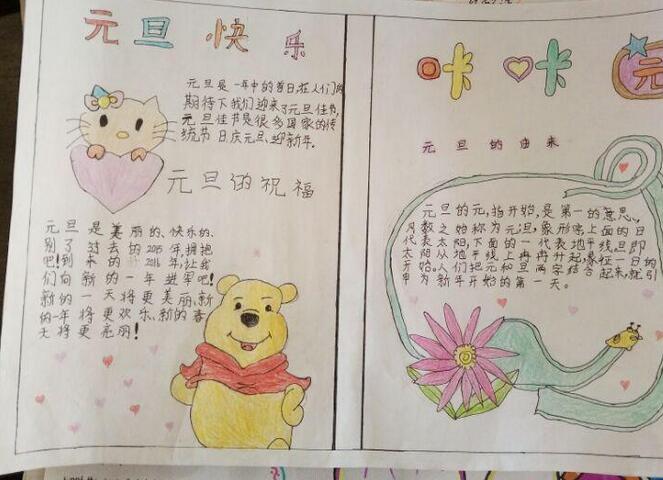 元旦快乐
元旦是一年中的首日,在人们的
期待下我们迎来了元旦佳节,
元旦佳节是很多国家的传
统节日,庆元旦、迎新年。
元旦的祝福
元旦是美丽的、快乐的、
别了过去的2015年,拥抱
吧!到来的2016年,让我
们向新的一年进军吧!
新的一天将更美丽、新
的一年将更欢乐、新的春
天将更亮丽!
咔咔元
元旦的由来
元旦的元,指开始,是第一的意思。
数之始称为元
旦,象形字上面的日
代表太阳,下面的一代表地平线,旦即
太阳从地平线上冉冉升起,象征一日的
开始。人们把元和旦两字结合起来,就引
申为新年开始的第一天。